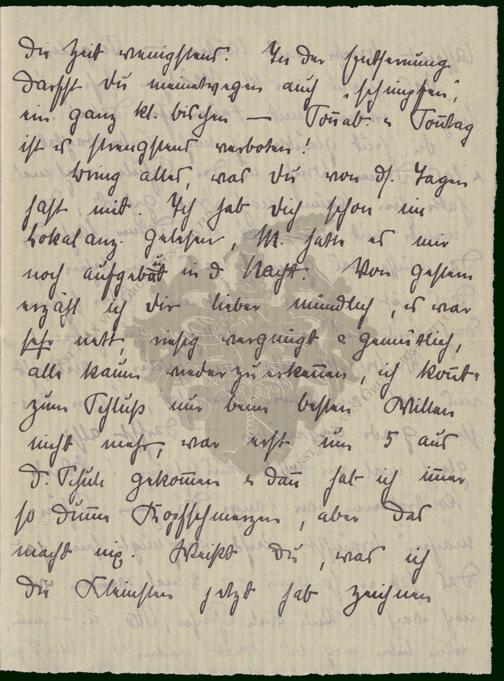 die Zeit wenigstens. In der Entfernung
darfst Du meinetwegen auch „schimpfen“,
ein ganz kl. bischen — Sonnab. u Sonntag
ist es strengstens verboten!
Bring alles, was Du von ds. Tagen
hast, mit. Ich hab Dich schon im
Lokalanz. gelesen, M. hatte es mir
noch in d. Nacht. Von gestern
erzähl ich Dir lieber mündlich, es war
sehr nett, riesig vergnügt u gemütlich,
alle kaum wiederzuerkennen, ich konnt
zum Schluß nur beim besten Willen
nicht mehr, war erst um 5 aus
d. Schule gekommen u dann hab ich immer
so dumme Kopfschmerzen, aber das
macht nix. Weißt Du, was ich
die Kleinsten jetzt hab zeichnen